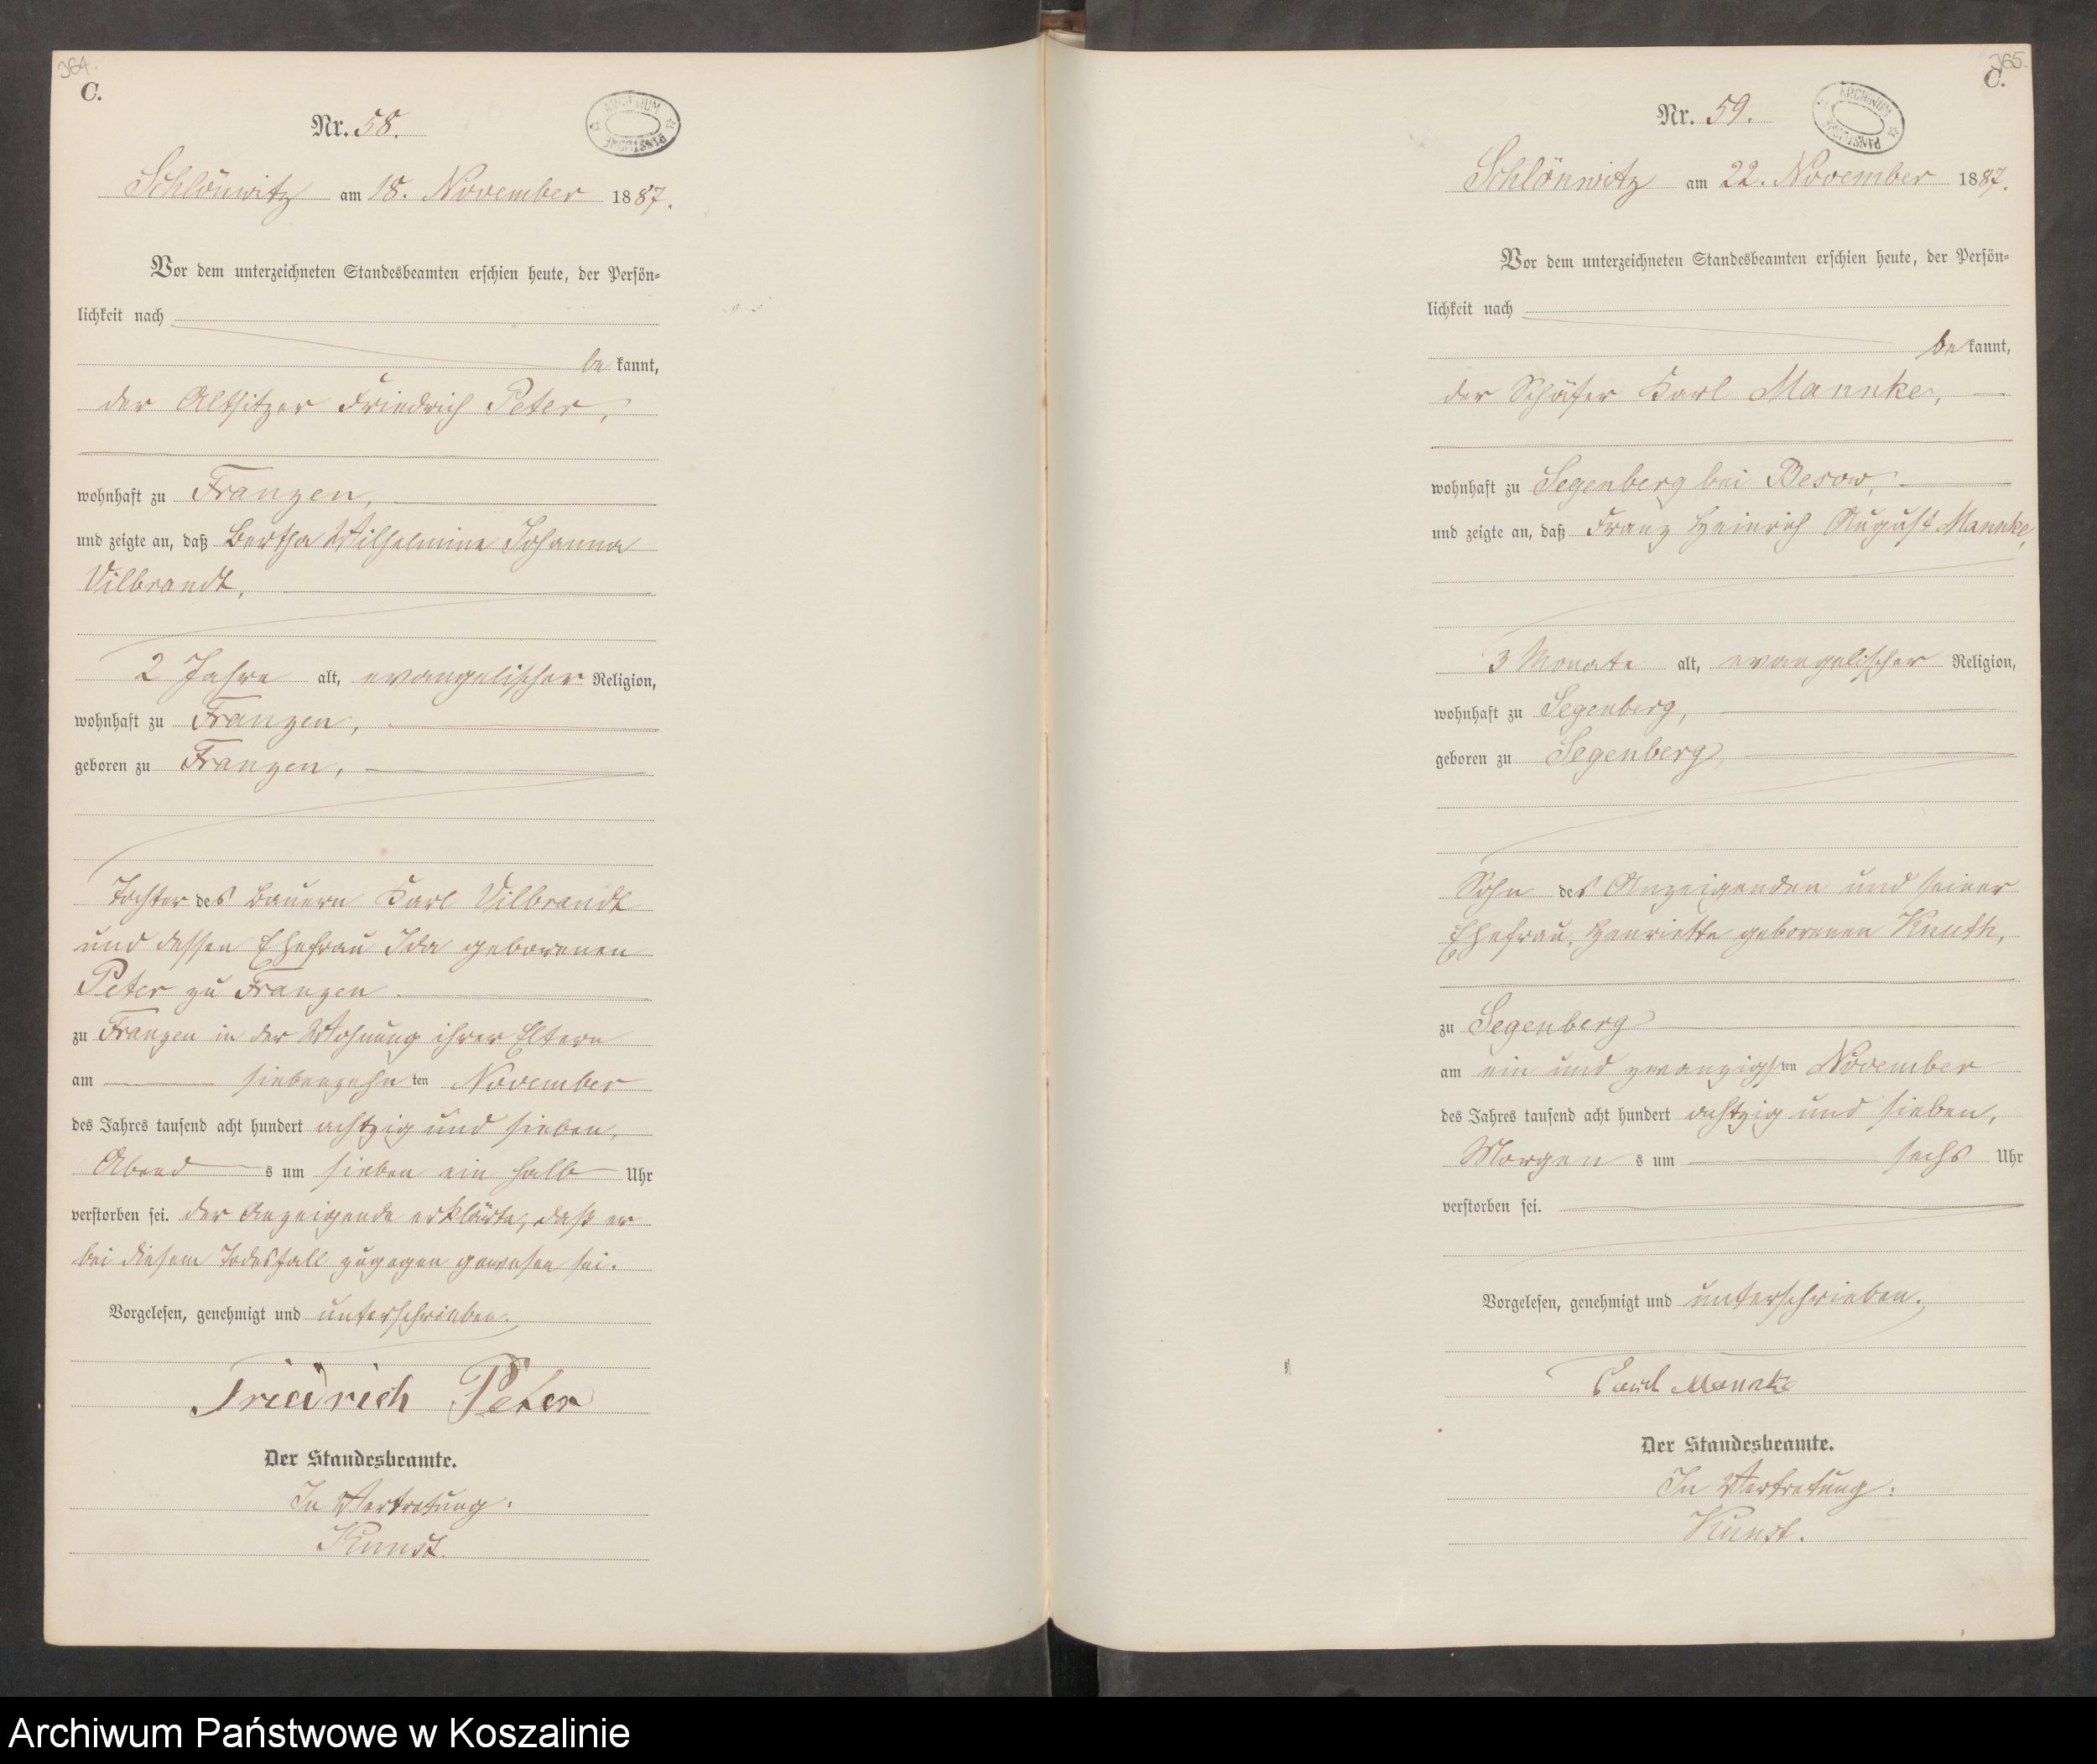 364.
C.
ARCHIWUM PAŃSTWOWE
Nr. 58.
Schlönwitz am 18. November 1887.
Vor dem unterzeichneten Standesbeamten erschien heute, der Persön-
lichkeit nach
be kannt,
der Altsitzer Friedrich Peter,
wohnhaft zu Franzen,
und zeigte an, daß Bertha Wilhelmine Johanna
Vilbrandt,
2 Jahre alt, evangelischer Religion,
wohnhaft zu Franzen,
geboren zu Franzen,
Tochter des Bauern Karl Vilbrandt
und dessen Ehefrau Ida geborenen
Peter zu Franzen
zu Franzen in der Wohnung ihrer Eltern
am siebenzehn ten November
des Jahres tausend acht hundert achtzig und sieben,
Abend s um sieben ein halb Uhr
verstorben sei. der Anzeigende erklärte, daß er
bei diesem Todesfall zugegen gewesen sei.
Vorgelesen, genehmigt und unterschrieben.
Friedrich Peter
Der Standesbeamte.
In Vertretung:
Kunst.
365.
C.
ARCHIWUM PAŃSTWOWE
Nr. 59.
Schlönwitz am 22. November 1887.
Vor dem unterzeichneten Standesbeamten erschien heute, der Persön-
lichkeit nach
be kannt,
der Schäfer Karl Mannke,
wohnhaft zu Segenberg bei Besow,
und zeigte an, daß Franz Heinrich August Mannke,
3 Monate alt, evangelischer Religion,
wohnhaft zu Segenberg,
geboren zu Segenberg,
Sohn des Anzeigenden und seiner
Ehefrau, Henriette geborenen Knuth,
zu Segenberg
am ein und zwanzigsten November
des Jahres tausend acht hundert achtzig und sieben,
Morgen s um sechs Uhr
verstorben sei.
Vorgelesen, genehmigt und unterschrieben.
Carl Mannke
Der Standesbeamte.
In Vertretung:
Kunst.
Archiwum Państwowe w Koszalinie